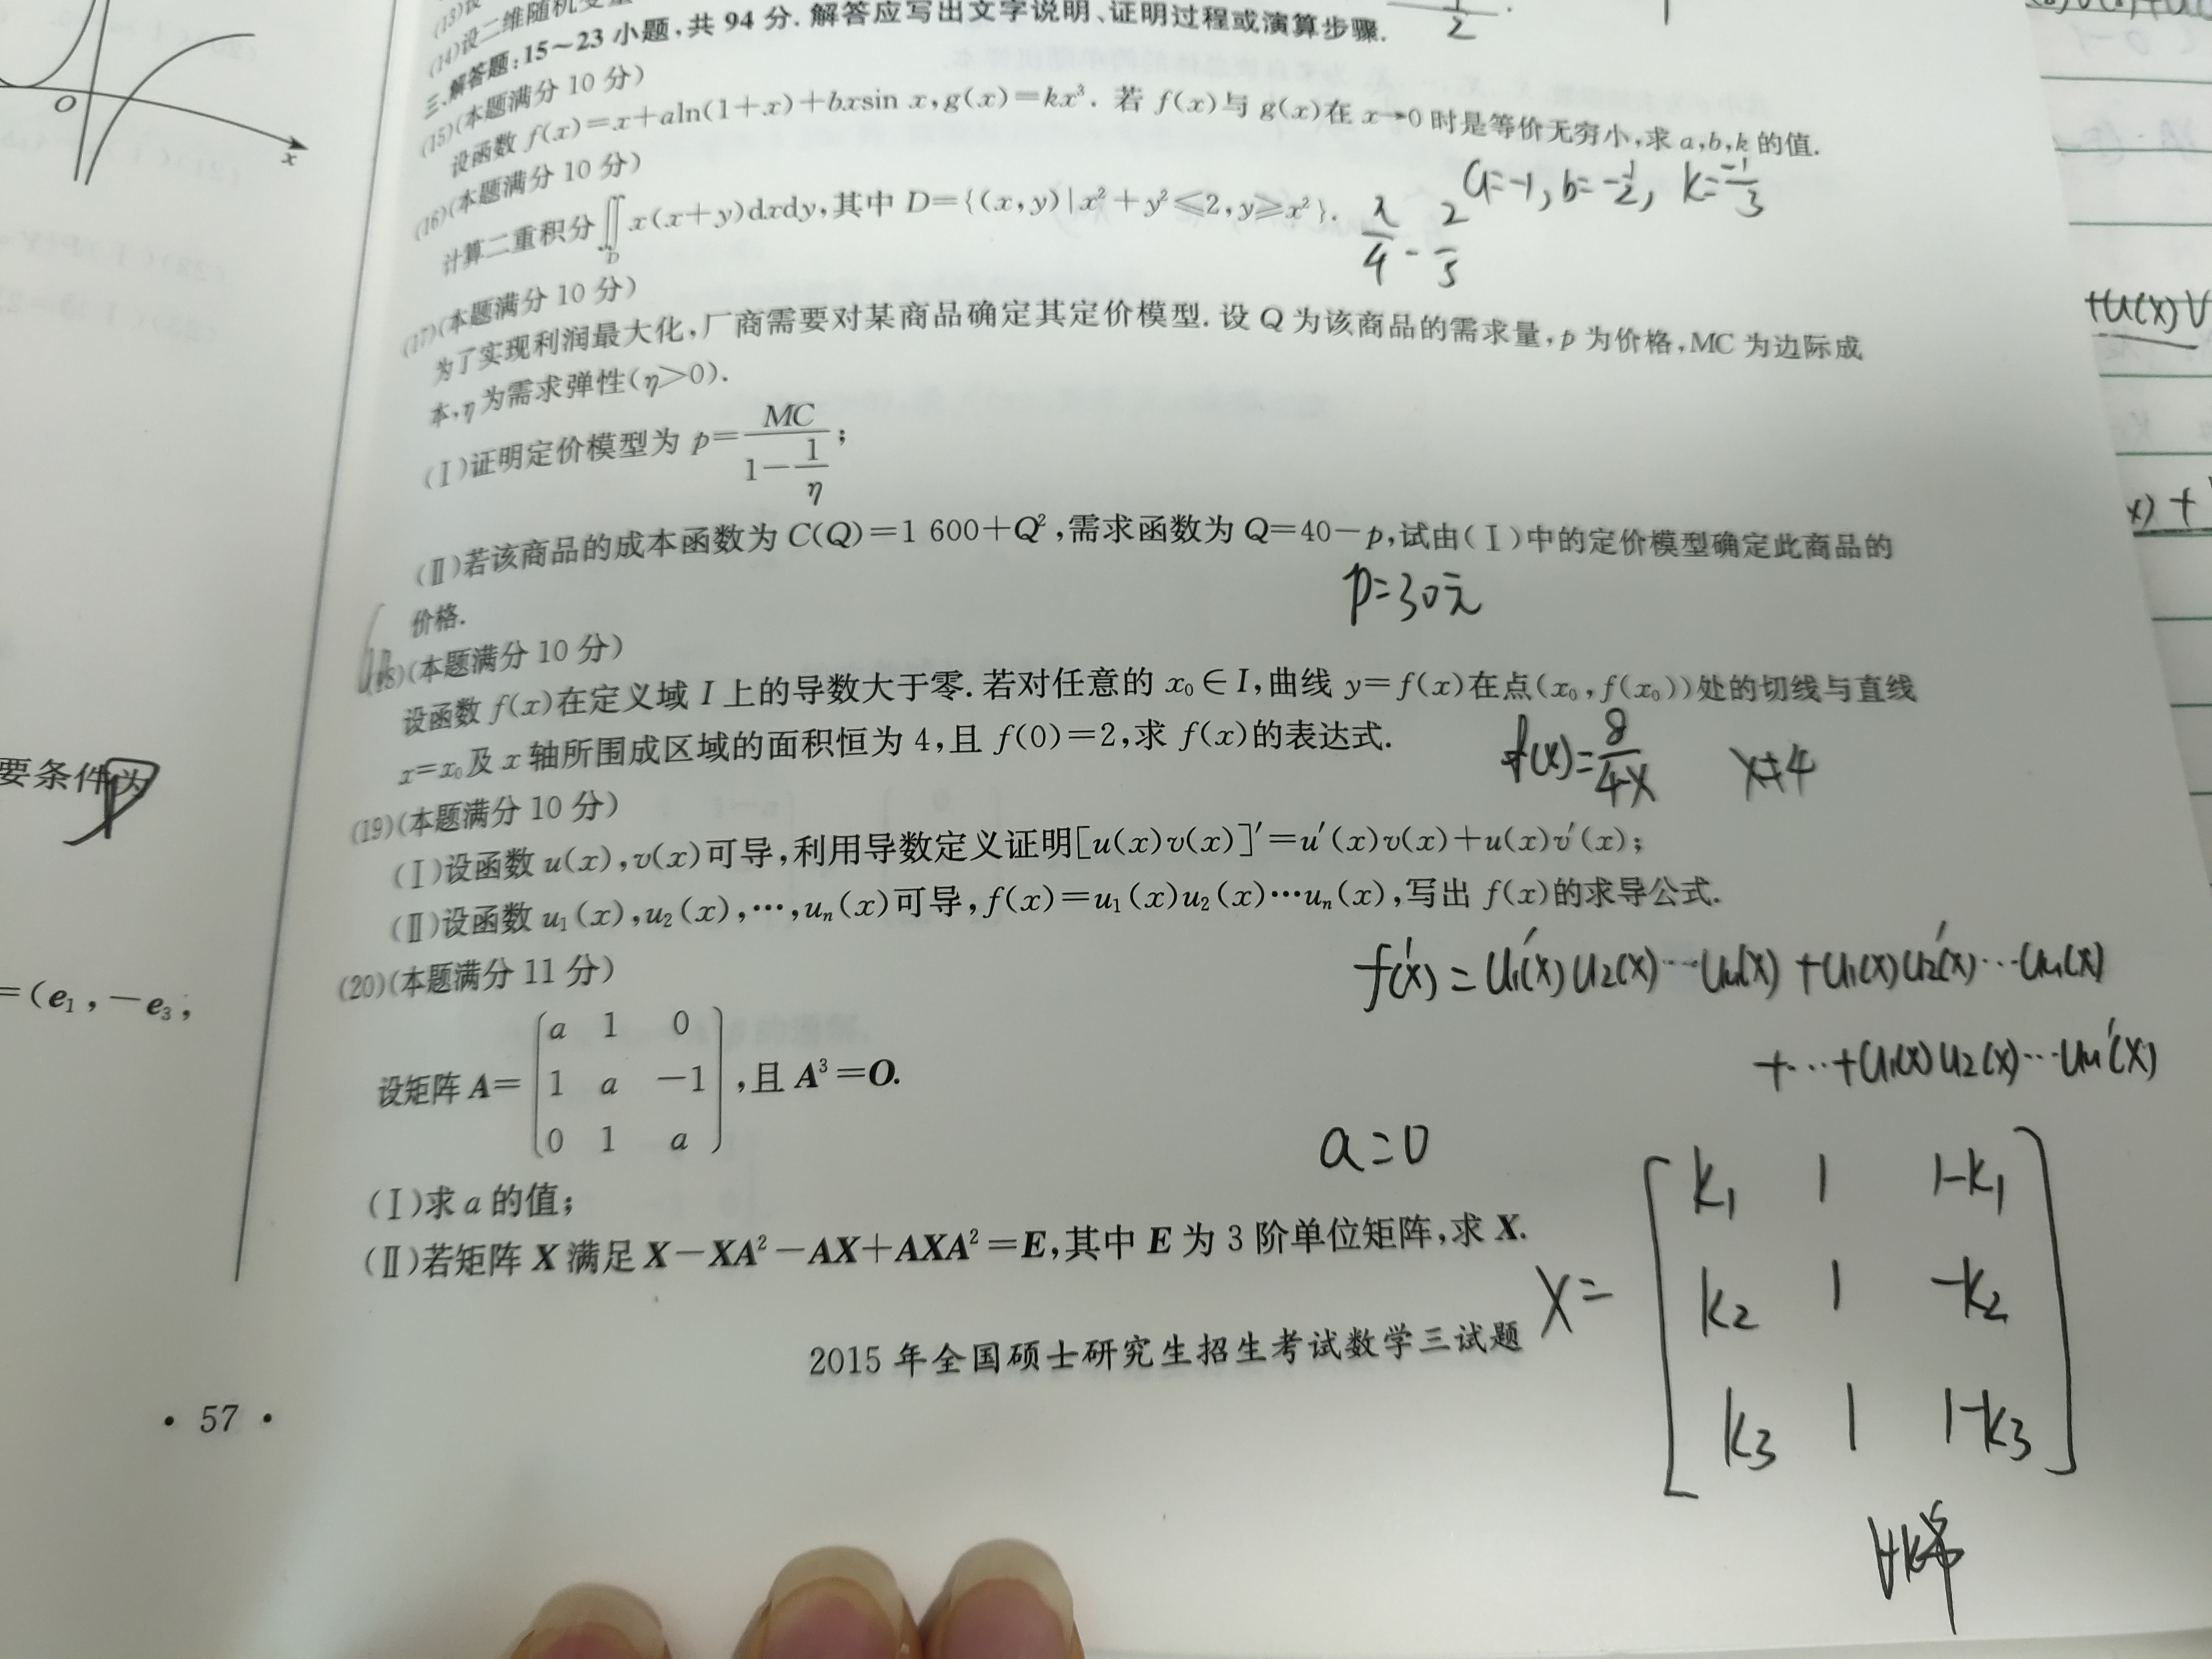 (14)设二维随机变量
三、解答题:15~23小题,共94分.解答应写出文字说明、证明过程或演算步骤.
(15)(本题满分10分)
设函数 f(x)=x+aln(1+x)+bxsin x,g(x)=kx³. 若 f(x)与 g(x)在 x→0时是等价无穷小,求 a,b,k 的值.
a=-1, b=-1/2, k=-1/3
(16)(本题满分10分)
计算二重积分∬_D x(x+y)dxdy,其中 D={(x,y)|x²+y²≤2,y≥x²}.
π/4 - 2/5
(17)(本题满分10分)
为了实现利润最大化,厂商需要对某商品确定其定价模型.设 Q 为该商品的需求量,p 为价格,MC 为边际成
本,η为需求弹性(η>0).
(Ⅰ)证明定价模型为 p=MC/(1-1/η);
(Ⅱ)若该商品的成本函数为 C(Q)=1 600+Q²,需求函数为 Q=40-p,试由(Ⅰ)中的定价模型确定此商品的
价格.
p=30元
(18)(本题满分10分)
设函数 f(x)在定义域 I 上的导数大于零.若对任意的 x₀∈I,曲线 y=f(x)在点(x₀,f(x₀))处的切线与直线
x=x₀及 x 轴所围成区域的面积恒为4,且 f(0)=2,求 f(x)的表达式.
f(x)=8/(4-x) x≠4
(19)(本题满分10分)
(Ⅰ)设函数 u(x),v(x)可导,利用导数定义证明[u(x)v(x)]′=u′(x)v(x)+u(x)v′(x);
(Ⅱ)设函数 u₁(x),u₂(x),…,uₙ(x)可导,f(x)=u₁(x)u₂(x)…uₙ(x),写出 f(x)的求导公式.
f′(x)=u₁′(x)u₂(x)…uₙ(x)+u₁(x)u₂′(x)…uₙ(x)
+…+u₁(x)u₂(x)…uₙ′(x)
(20)(本题满分11分)
a 1 0
设矩阵 A= 1 a -1 ,且 A³=O.
0 1 a
a=0
(Ⅰ)求 a 的值;
(Ⅱ)若矩阵 X 满足 X-XA²-AX+AXA²=E,其中 E 为3阶单位矩阵,求 X.
k₁ 1 1-k₁
X= k₂ 1 -k₂
k₃ 1 1-k₃
2015年全国硕士研究生招生考试数学三试题
· 57 ·
要条件为
D
=(e₁,-e₃,
O
x
+u(x)v
x)+